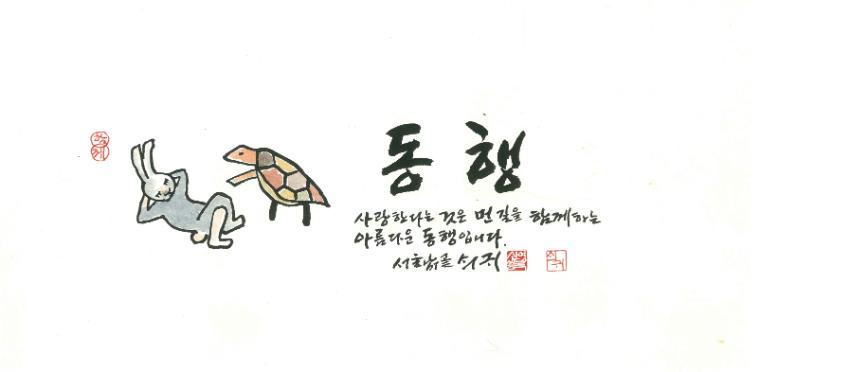 동행
사랑한다는 것은 먼 길을 함께하는
아름다운 동행입니다.
쇠귀